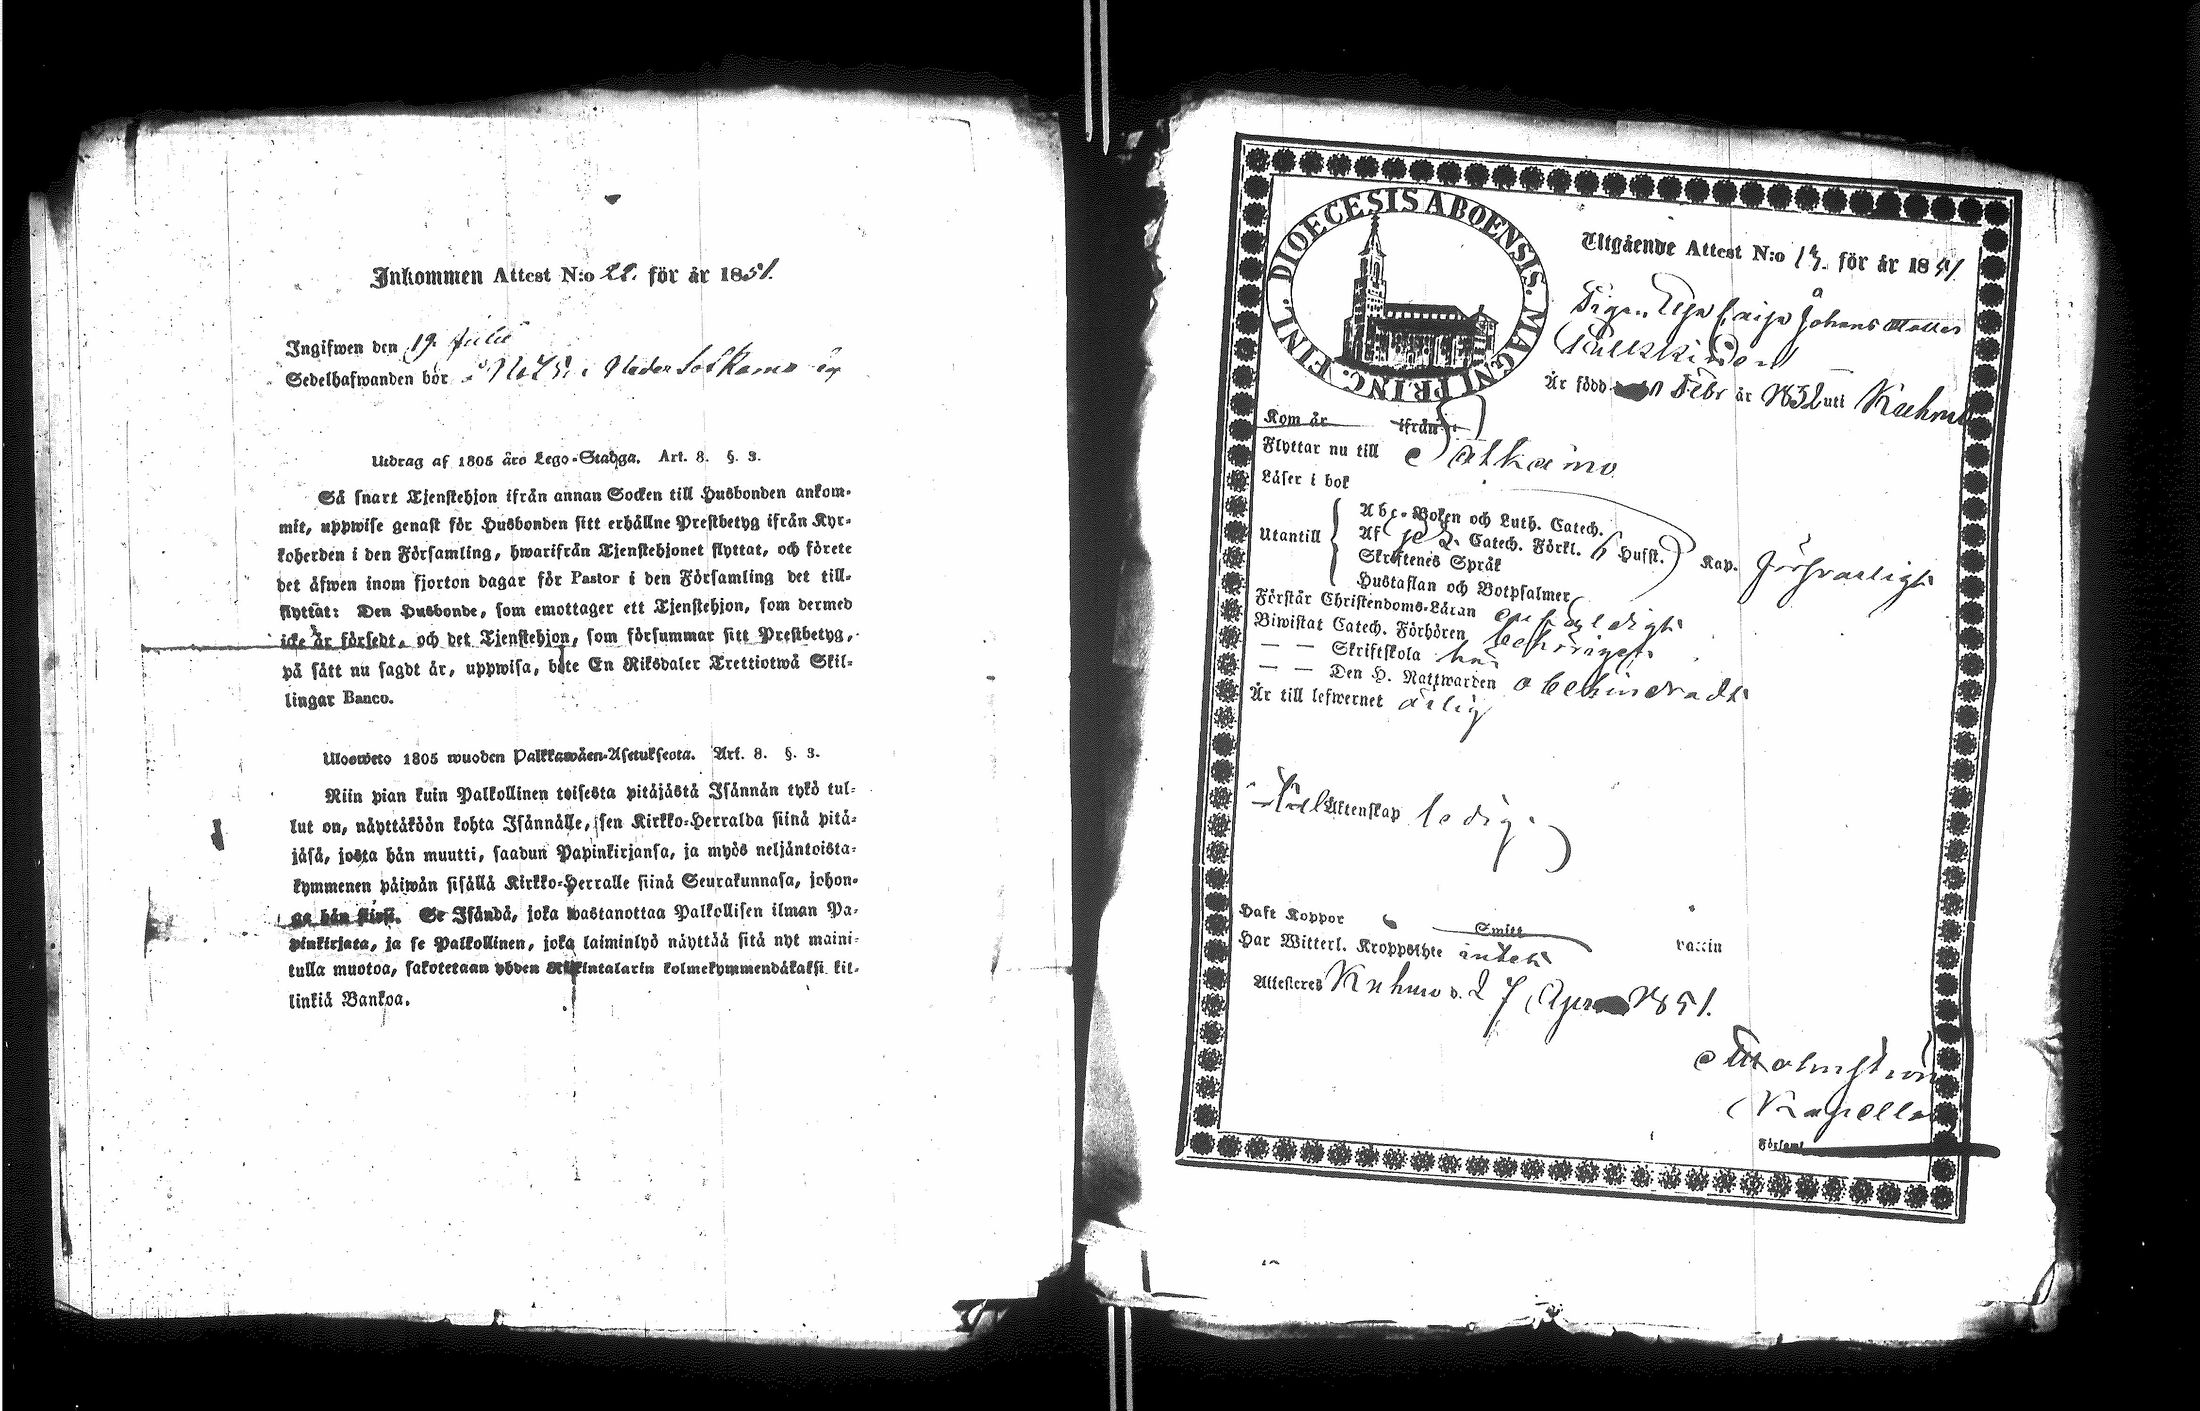 Inkommen Attest N:o 22. för år 1851.
Ingifwen den 19 Julii
Sedelhafwanden bor N:o 25. i Neder Sotkamo by
Utdrag af 1805 års Lego-Stadga. Art. 8. §. 3.
Så snart Tjenstehjon ifrån annan Socken till Husbonden ankom-
mit, uppwise genast för Husbonden sitt erhållne Prestbetyg ifrån Kyr-
koherden i den Församling, hwarifrån Tjenstehjonet flyttat, och förete
det äfwen inom fjorton dagar för Pastor i den Församling det till-
flyttat: Den Husbonde, som emottager ett Tjenstehjon, som dermed
icke är försedt, och det Tjenstehjon, som försummar sitt Prestbetyg,
på sätt nu sagdt är, uppwisa, böte En Riksdaler Trettiotwå Skil-
lingar Banco.
Ulosweto 1805 wuoden Palkkawäen-Asetuksesta. Art. 8. §. 3.
Niin pian kuin Palkollinen toisesta pitäjästä Isännän tykö tul-
lut on, näyttäköön kohta Isännälle, sen Kirkko-Herralda siinä pitä-
jäsä, josta hän muutti, saadun Papinkirjansa, ja myös neljäntoista-
kymmenen päiwän sisällä Kirkko-Herralle siinä Seurakunnasa, johon-
ga hän siirsi. Se Isändä, joka wastanottaa Palkollisen ilman Pa-
pinkirjata, ja se Palkollinen, joka laiminlyö näyttää sitä nyt maini-
tulla muotoa, sakotetaan yhden Riikintalarin kolmekymmendäkaksi kil-
linkiä Bankoa.
DIOECESIS ABOENSIS. MAGNI PRINC. FINL.
Utgående Attest N:o 13. för år 1851
Pigan Caisa Johans dotter
Är född Febr år 1832 uti Kuhmo
Kom år ifrån
Flyttar nu till Sotkamo
Läser i bok
Abc-Boken och Luth. Catech.
Utantill Af Catech. Förkl. Husst. Kap. försvarligt
Skriftenes Språk
Hustaflan och Botpsalmer
Förstår Christendoms-Läran enfaldigt
Biwistat Catech. Förhören behörigen
— — Skriftskola här
— — Den H. Nattwarden obehindradt
Är till lefwernet ärlig
Till Äktenskap ledig
Haft Koppor
Smitt
vaccin
Har Witterl. Kroppslyte intet
Attesteres Kuhmo d. 27 Apr 1851.
Holmström
Kapellan
Församl